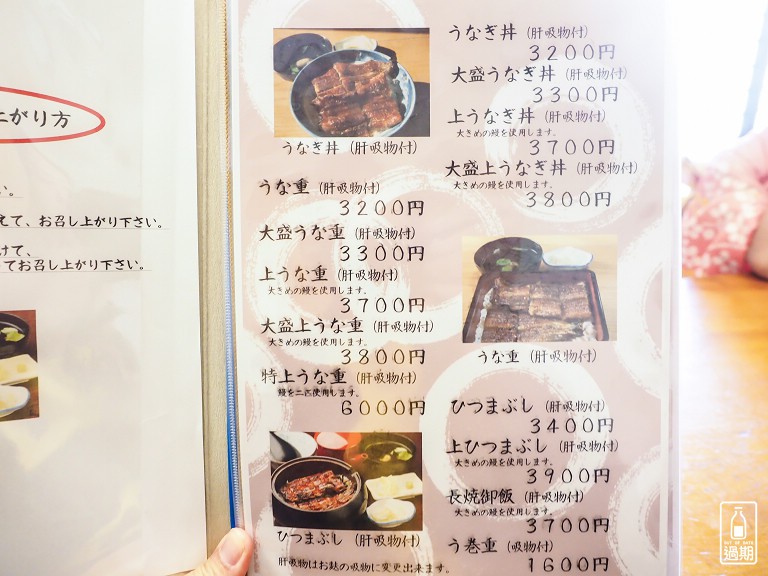 上がり方
い。
えて、お召し上がり下さい。
けて、
てお召し上がり下さい。
うなぎ丼（肝吸物付）
うな重（肝吸物付）
3200円
大盛うな重（肝吸物付）
3300円
上うな重（肝吸物付）
大きめの鰻を使用します。
3700円
大盛上うな重（肝吸物付）
大きめの鰻を使用します。
3800円
特上うな重（肝吸物付）
鰻を二匹使用します。
6000円
ひつまぶし（肝吸物付）
肝吸物はお麩の吸物に変更出来ます。
うなぎ丼（肝吸物付）
3200円
大盛うなぎ丼（肝吸物付）
3300円
上うなぎ丼（肝吸物付）
大きめの鰻を使用します。
3700円
大盛上うなぎ丼（肝吸物付）
大きめの鰻を使用します。
3800円
うな重（肝吸物付）
ひつまぶし（肝吸物付）
3400円
上ひつまぶし（肝吸物付）
大きめの鰻を使用します。
3900円
長焼御飯（肝吸物付）
大きめの鰻を使用します。
3700円
う巻重（吸物付）
1600円
OUT OF DATE
過期